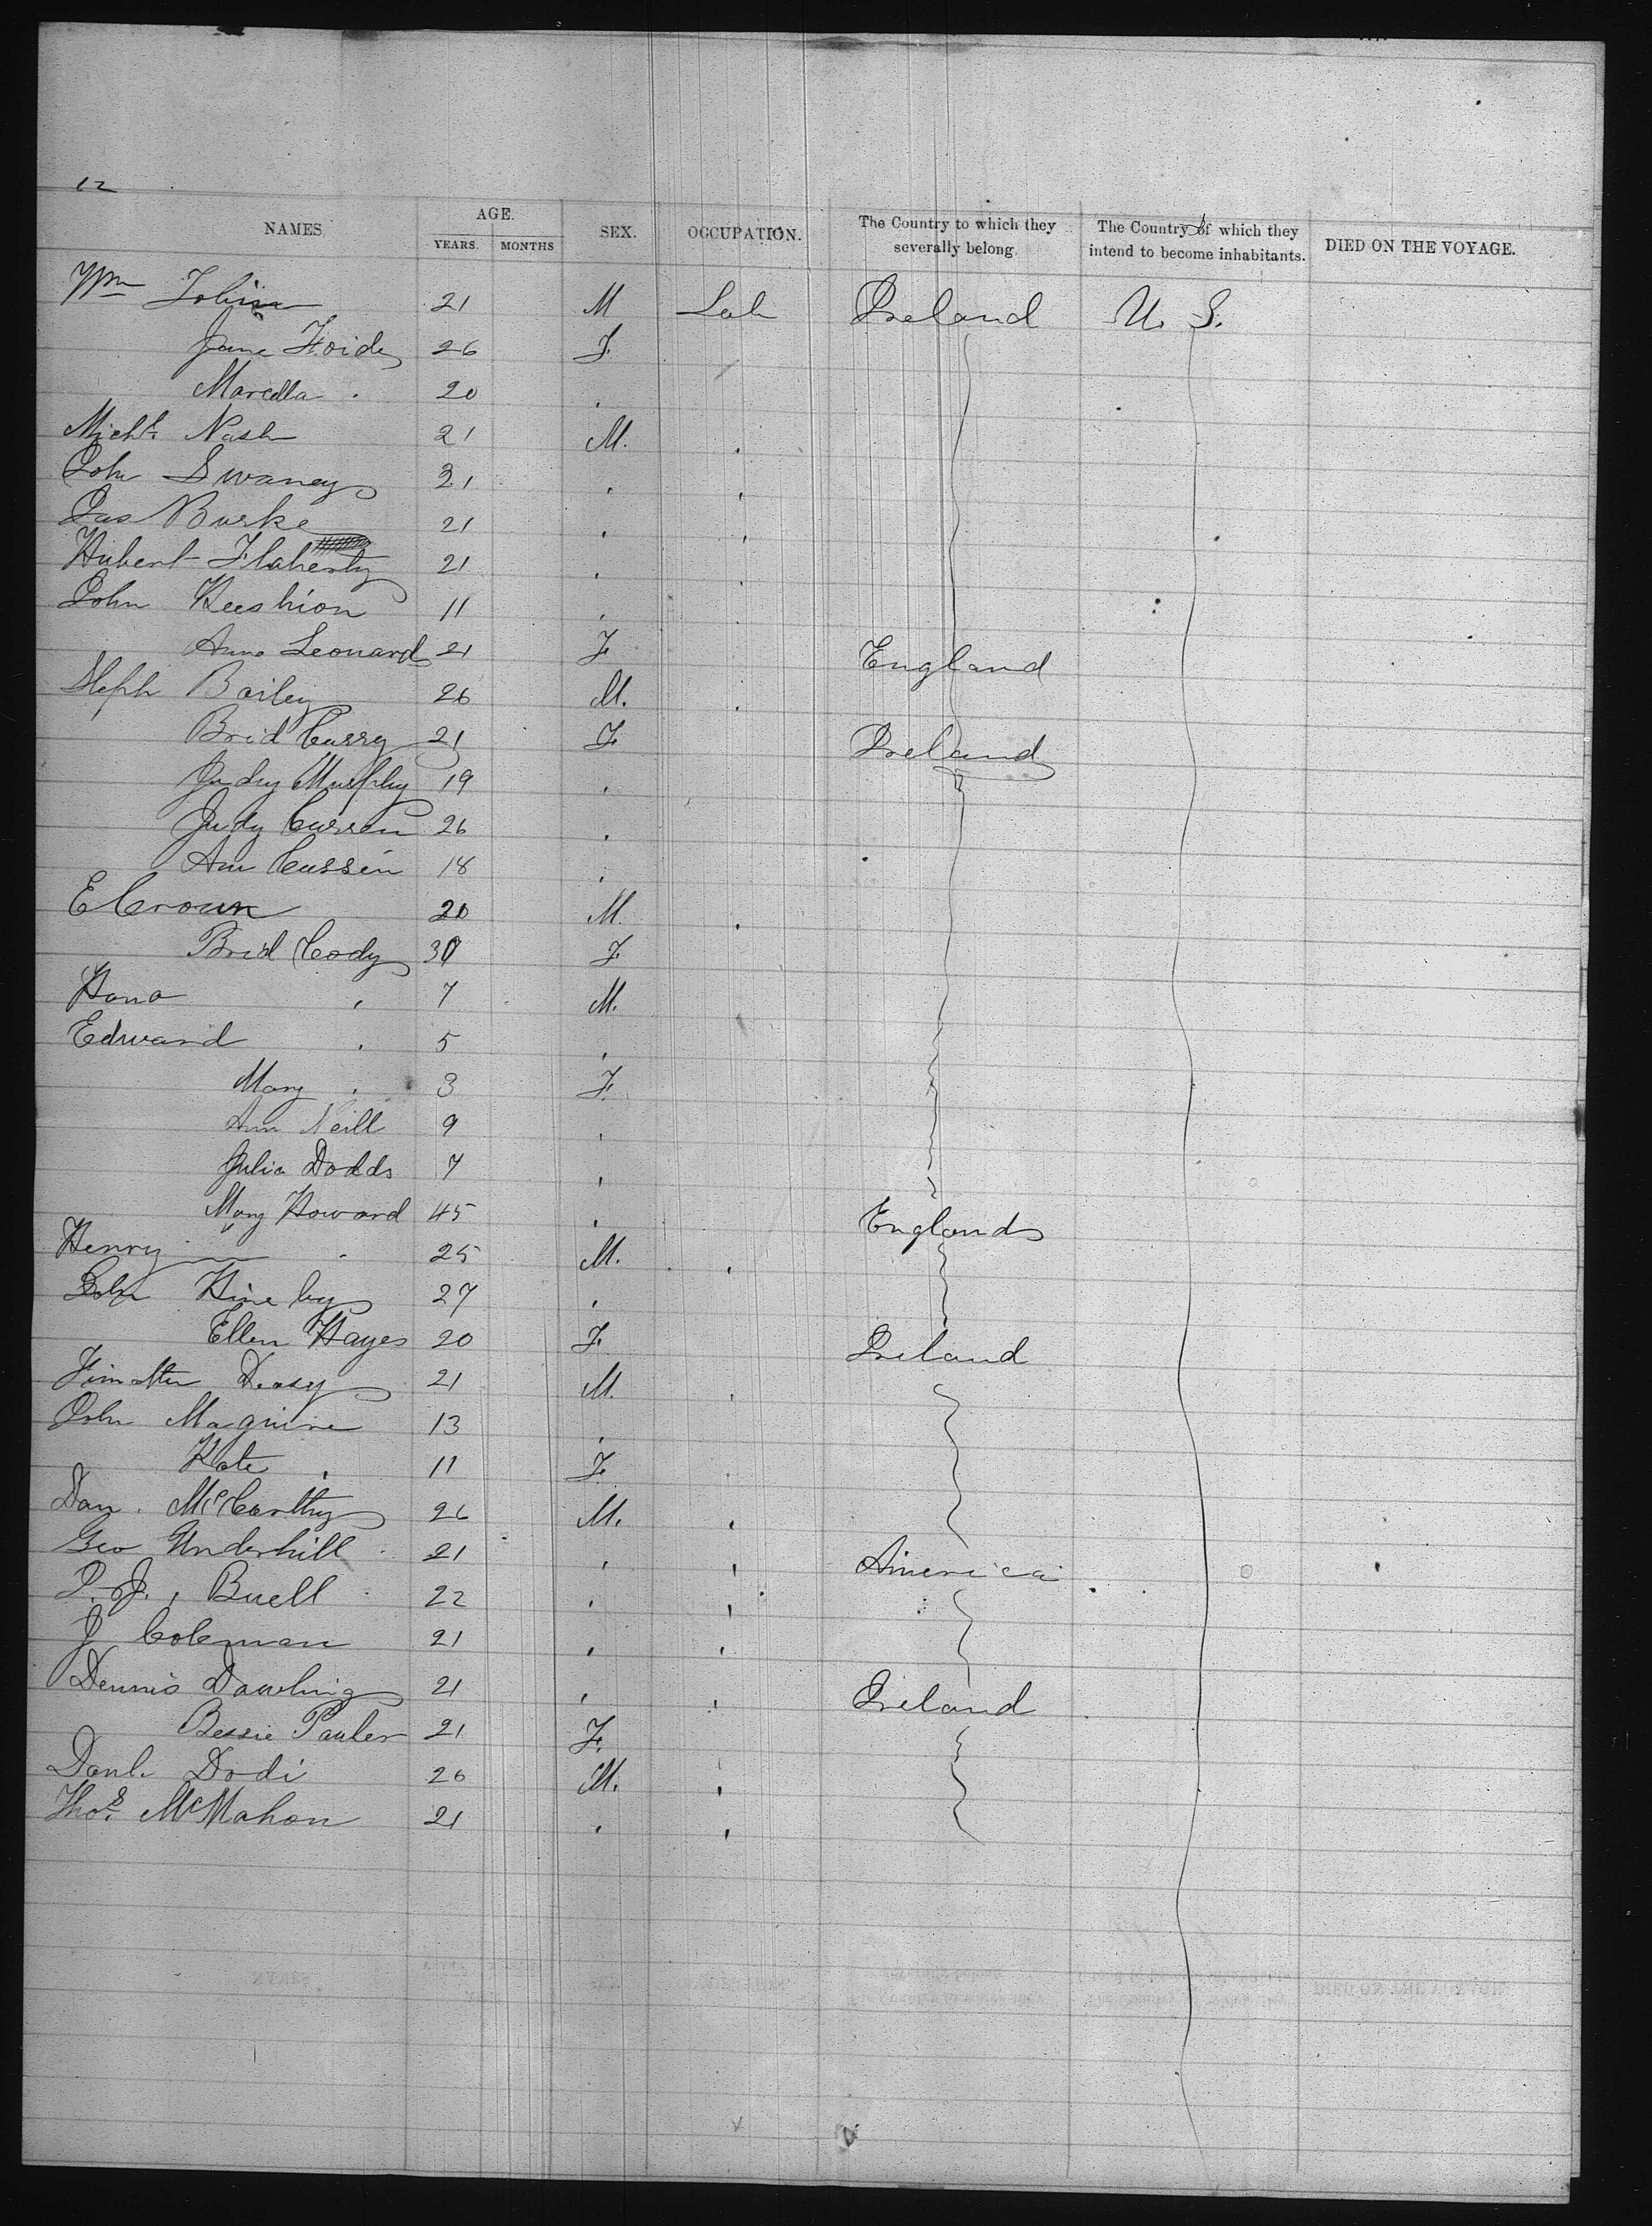 12
NAMES. AGE. YEARS. MONTHS SEX. OCCUPATION. The Country to which they severally belong. The Country of which they intend to become inhabitants. DIED ON THE VOYAGE.
Wm Tobin 21 M Lab Ireland U. S.
Jane 26 F
Marcella . 20 .
Michl. Nash 21 M. .
John Swaney 21 . .
Jas Burke 21 . .
Hubert Flaherty 21 . .
John Keeshion 11 . .
Anne Leonard 21 F England
Steph Bailey 26 M. .
Brid Curry 21 F Ireland
Judy Murphy 19 .
Judy Curran 26 .
Ann Cussen 18 .
E Croun 20 M. .
Brid Cody 30 F
Hana . 7 M.
Edward . 5 .
Mary . 3 F.
Ann Neill 9 .
Julia Dodds 7 .
Mary Howard 45 . England
Henry . 25 M. .
John 27 .
Ellen Hayes 20 F Ireland
Deasy 21 M. .
John Maguire 13 .
Kate . 11 F .
Dan. McCarthy 26 M. .
Geo Underhill 21 . . America
P. J. Buell 22 . .
J Coleman 21 . .
Dennis Dowling 21 . . Ireland
Bessie 21 F.
Danl. Dodi 26 M. .
Thos. McMahon 21 . .